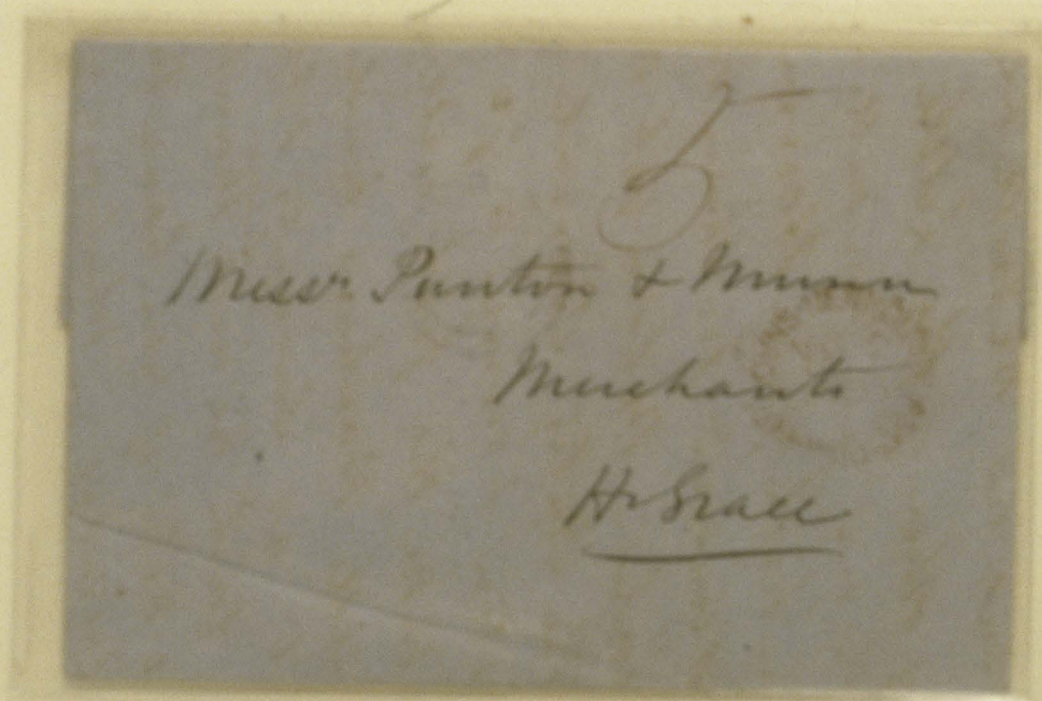 5
Messrs Punton & Munn
Merchants
Hr Grace